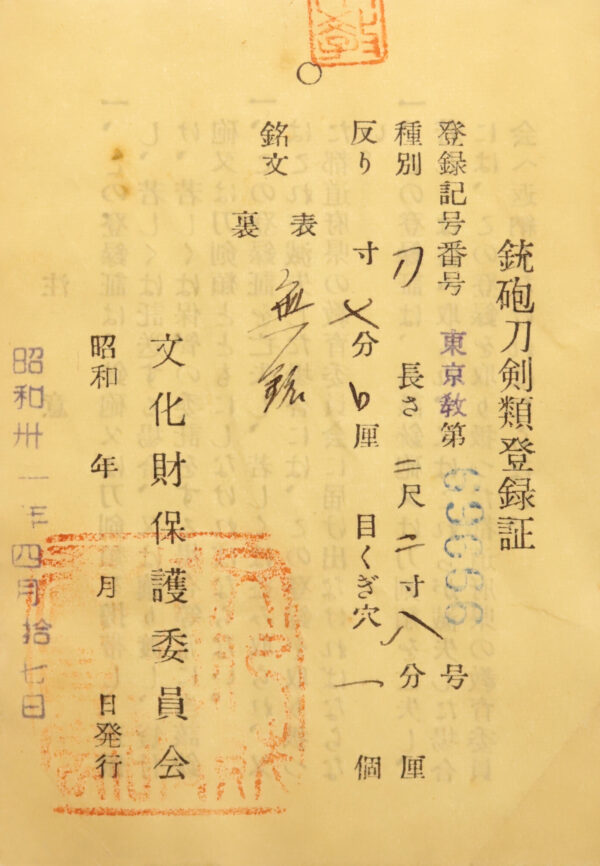 銃砲刀剣類登録証
登録記号番号 東京教第 号
種別 刀 長さ 二尺二寸八分 厘
反り 寸 分 厘 目くぎ穴 一個
銘文 表 無銘
裏
文化財保護委員会
昭和 年 月 日発行
昭和卅一年四月拾七日